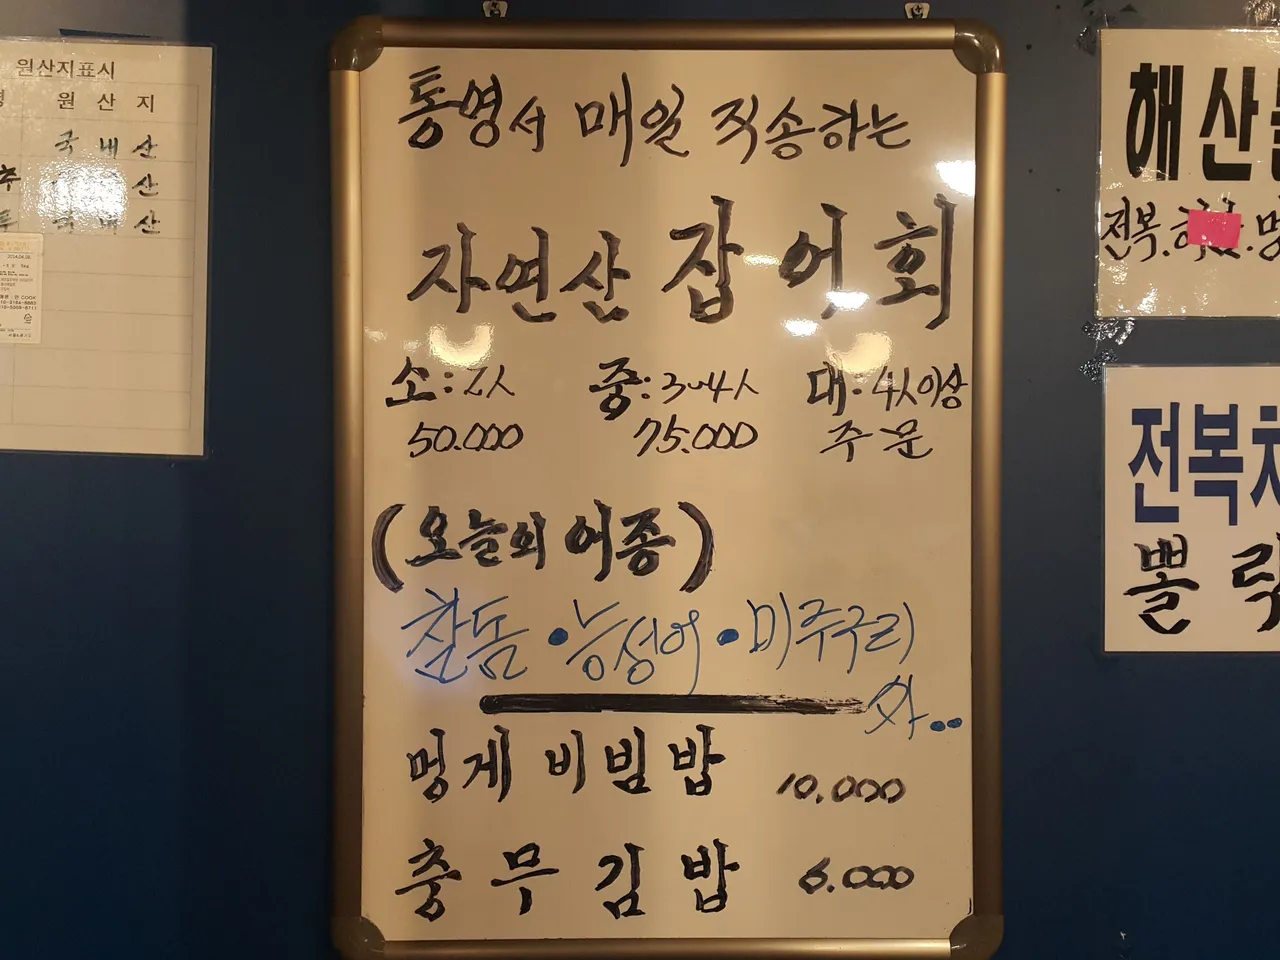 원산지표시
원 산 지
국 내 산
산
산
통영서 매일 직송하는
자연산 잡어회
소: 2人 중: 3~4人 대: 4人이상
50.000 75.000 주문
(오늘의 어종)
찰돔 • 능성어 • 미주구리
外..
멍게 비빔밥 10,000
충무김밥 6.000
해산
전복.
전복
뽈락